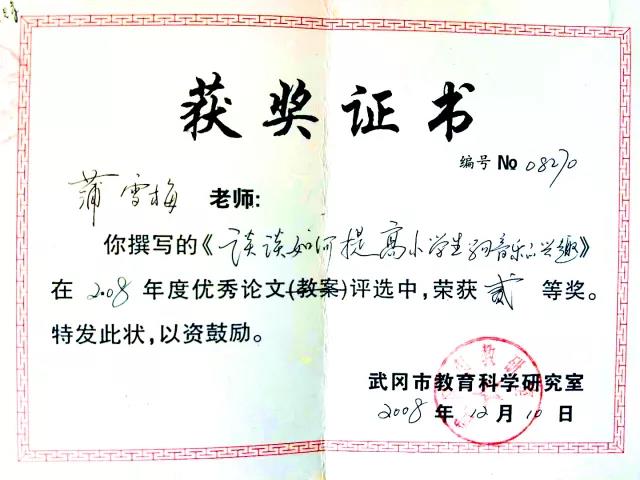 获奖证书
编号 No 08270
蒲雪梅 老师:
你撰写的《谈谈如何提高小学生对音乐的兴趣》
在 2008 年度优秀论文(教案)评选中,荣获 贰 等奖。
特发此状,以资鼓励。
武冈市教育科学研究室
2008 年 12 月 10 日